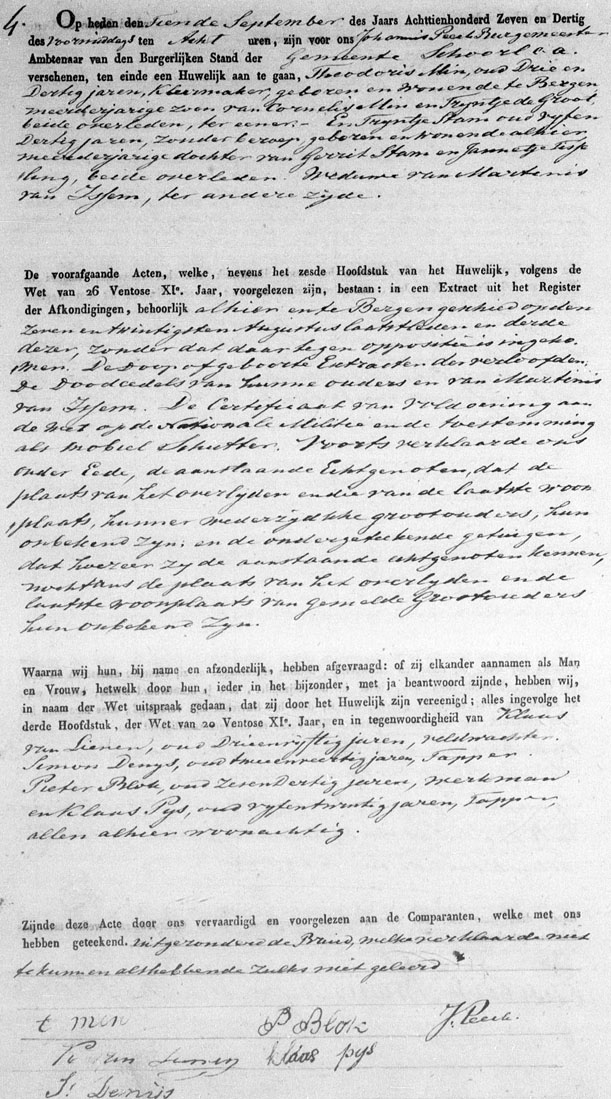 4. Op heden den tiende September des Jaars Achttienhonderd Zeven en Dertig
des Voormiddags ten Acht uren, zijn voor ons Johannis Peek Burgemeester
Ambtenaar van den Burgerlijken Stand der Gemeente Schoorl c.a.
verschenen, ten einde een Huwelijk aan te gaan, Theodoris Min, oud Drie en
Dertig jaren, Kleermaker, geboren en wonende te Bergen
meerderjarige zoon van Cornelis Min en Tryntje de Groot,
beide overleden, ter eener. – En Tryntje Stam oud vyfen
Dertig jaren, zonder beroep, geboren en wonende alhier
meerderjarige dochter van Gerrit Stam en Jannetje Tesse
ling, beide overleden. Weduwe van Martenis
van Issem, ter andere zyde.
De voorafgaande Acten, welke, nevens het zesde Hoofdstuk van het Huwelijk, volgens de
Wet van 26 Ventose XIe. Jaar, voorgelezen zijn, bestaan: in een Extract uit het Register
der Afkondigingen, behoorlijk alhier en te Bergen geschied op den
zeven en twintigsten Augustus laatstleden en derde
dezer, zonder dat daar tegen oppositie is ingeko
men. De Doop of geboorte Extracten der verloofden.
De Doodcedels van hunne ouders en van Martinis
van Issem. De Certificaat van voldoening aan
de Wet op de Nationale Militie en de toestemming
als mobiel Schutter. Voorts verklaarde ons
onder Eede, de aanstaande Echtgenoten, dat de
plaats van het overlyden en die van de laatste woon
plaats, hunner wederzydsche grootouders, hun
onbekend zyn; en de ondergeteekende getuigen,
dat hoezeer zy de aanstaande echtgenoten kennen,
nochtans de plaats van het overlyden en de
laatste woonplaats van gemelde Grootouders
hun onbekend zyn.
Waarna wij hun, bij name en afzonderlijk, hebben afgevraagd: of zij elkander aannamen als Man
en Vrouw, hetwelk door hun, ieder in het bijzonder, met ja beantwoord zijnde, hebben wij,
in naam der Wet uitspraak gedaan, dat zij door het Huwelijk zijn vereenigd; alles ingevolge het
derde Hoofdstuk, der Wet van 20 Ventose XIe. Jaar, en in tegenwoordigheid van Klaas
van Lienen, oud Drieenvyftig jaren, veldwachter.
Simon Denys, oud tweeenveertig jaren, Tapper
Pieter Blok, oud zesen Dertig jaren, werkman
en Klaas Pys, oud vyfentwintig jaren, Tapper,
allen alhier woonachtig.
Zijnde deze Acte door ons vervaardigd en voorgelezen aan de Comparanten, welke met ons
hebben geteekend. uitgezonderd de Bruid, welke verklaarde niet
te kunnen als hebbende zulks niet geleerd
t men P Blok J. Peek.
K van Lienen klaas pys
S. Denijs